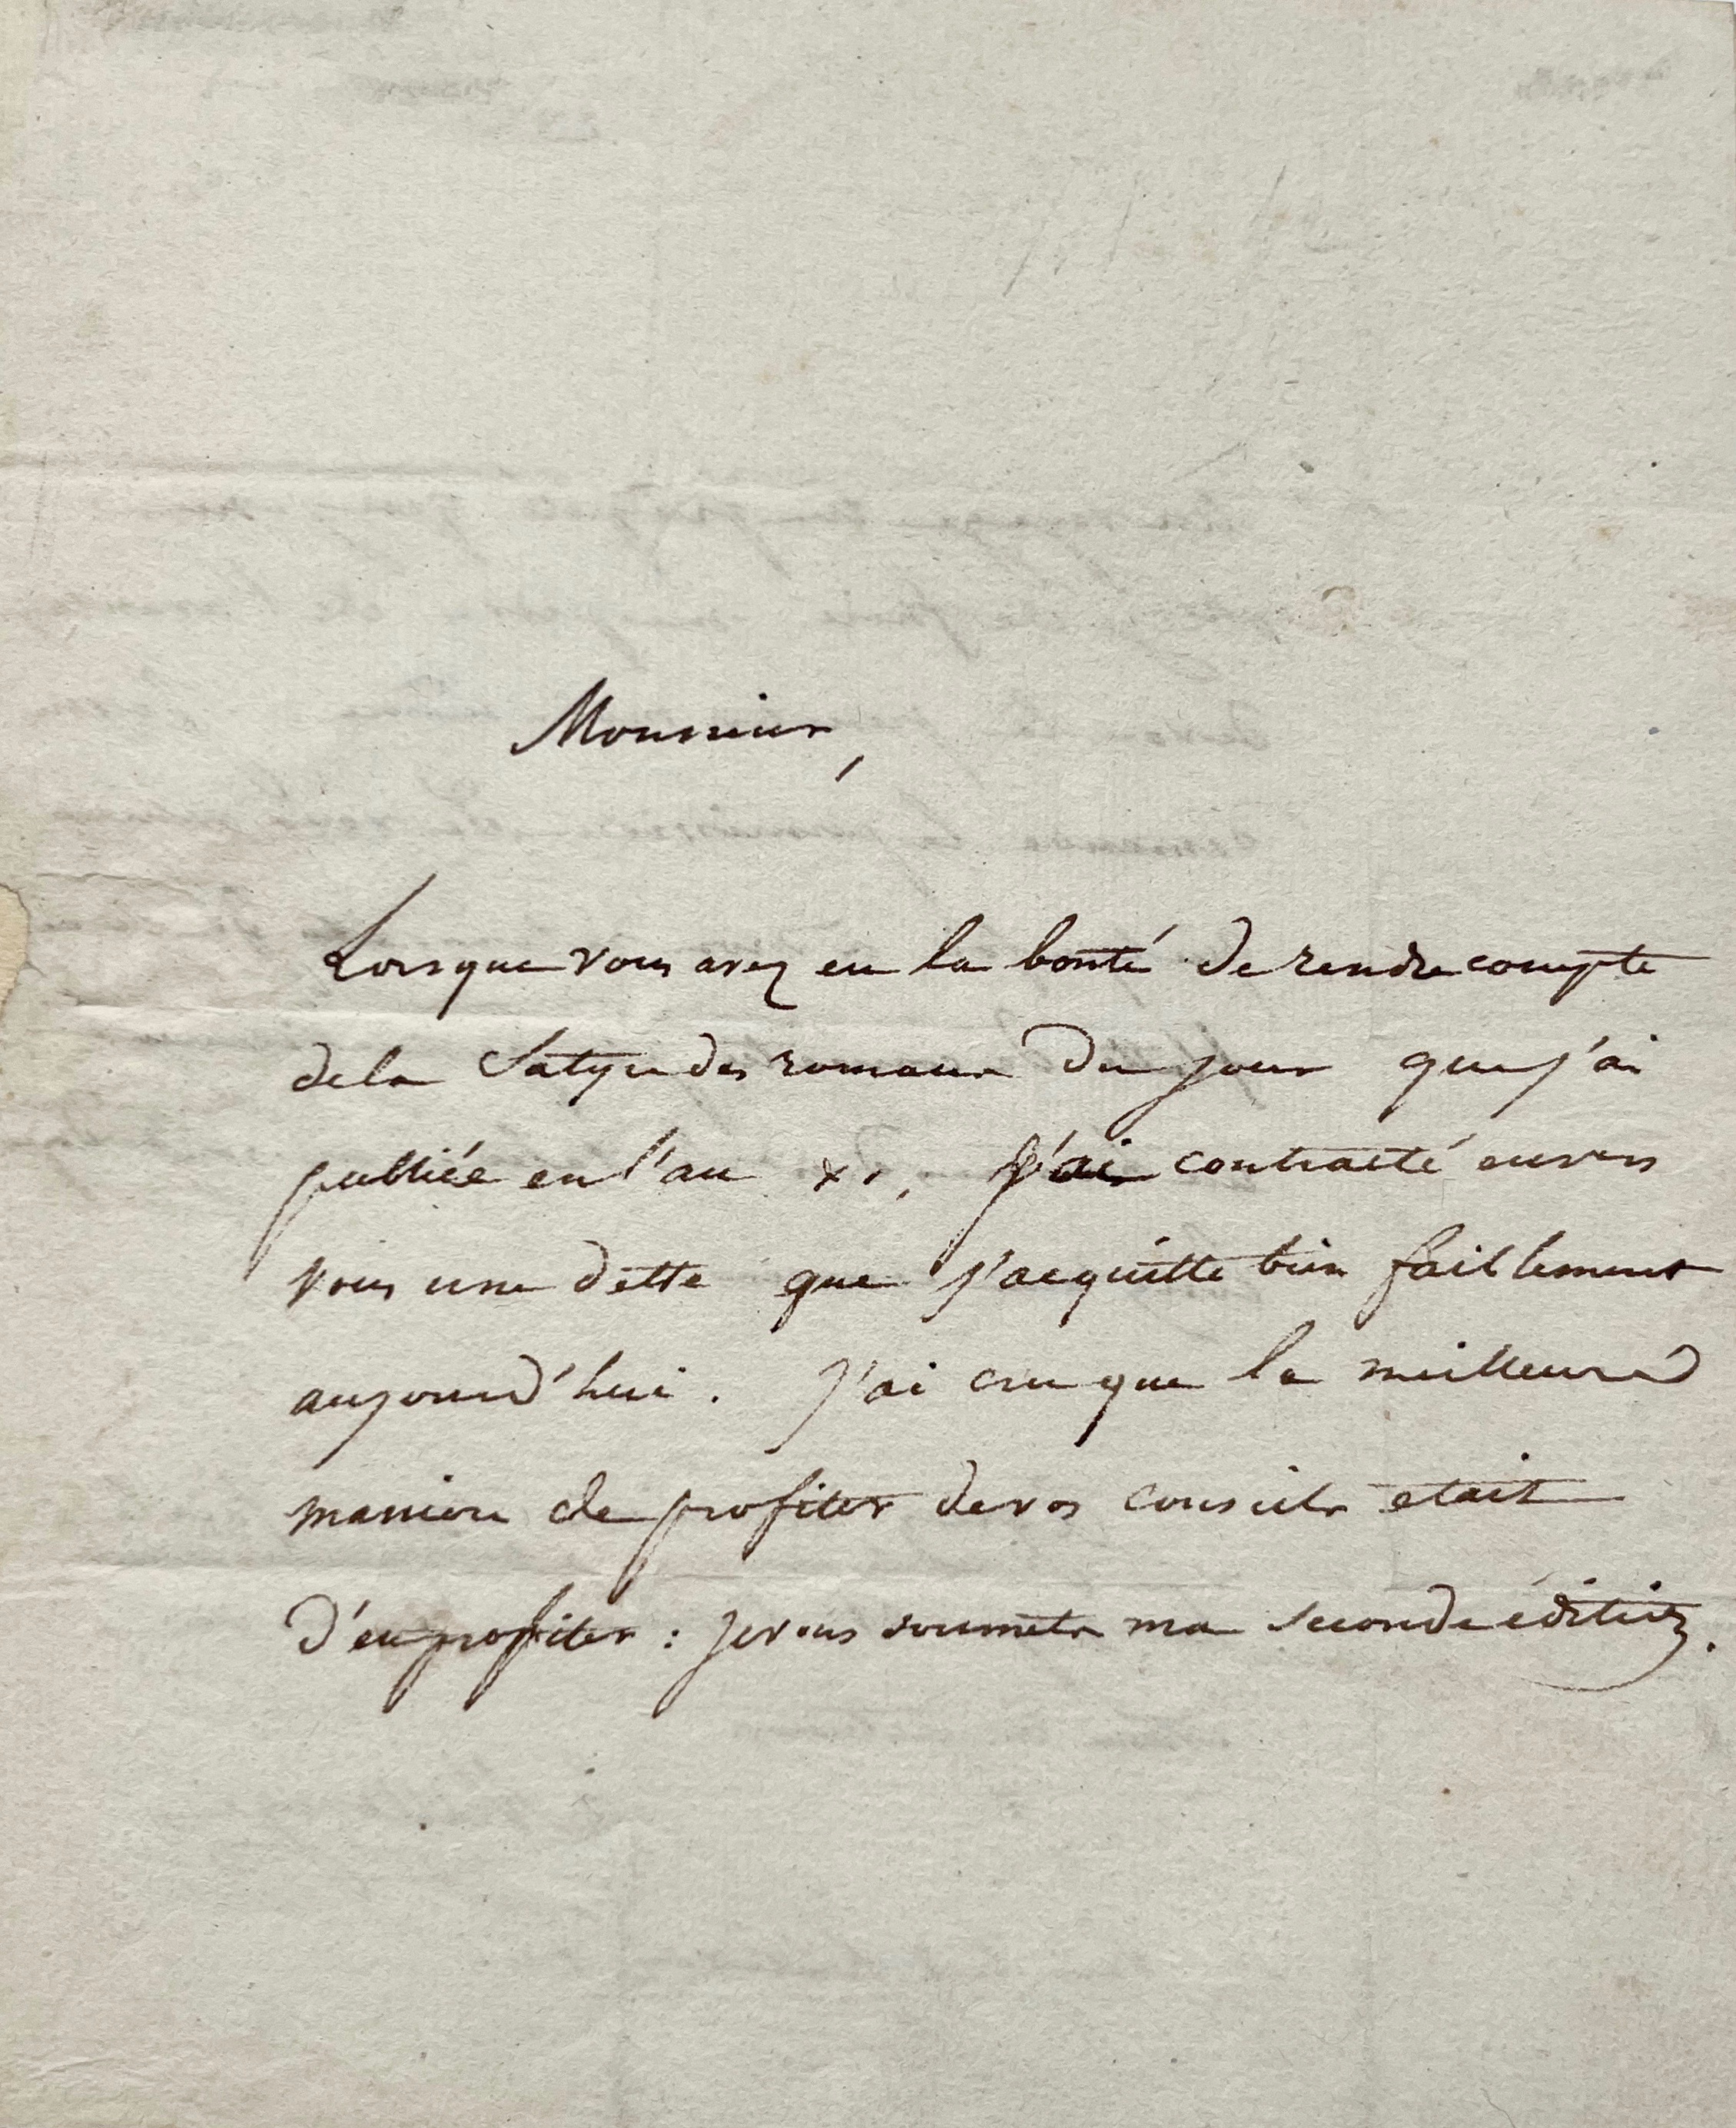 Monsieur,
Lorsque vous avez eu la bonté de rendre compte
de la Satyre des romans du jour que j'ai
publiée en l'an xi, j'ai contracté envers
vous une dette que j'acquitte bien faiblement
aujourd'hui. J'ai cru que la meilleure
maniere de profiter de vos conseils etait
d'en profiter : je vous soumets ma seconde édition.